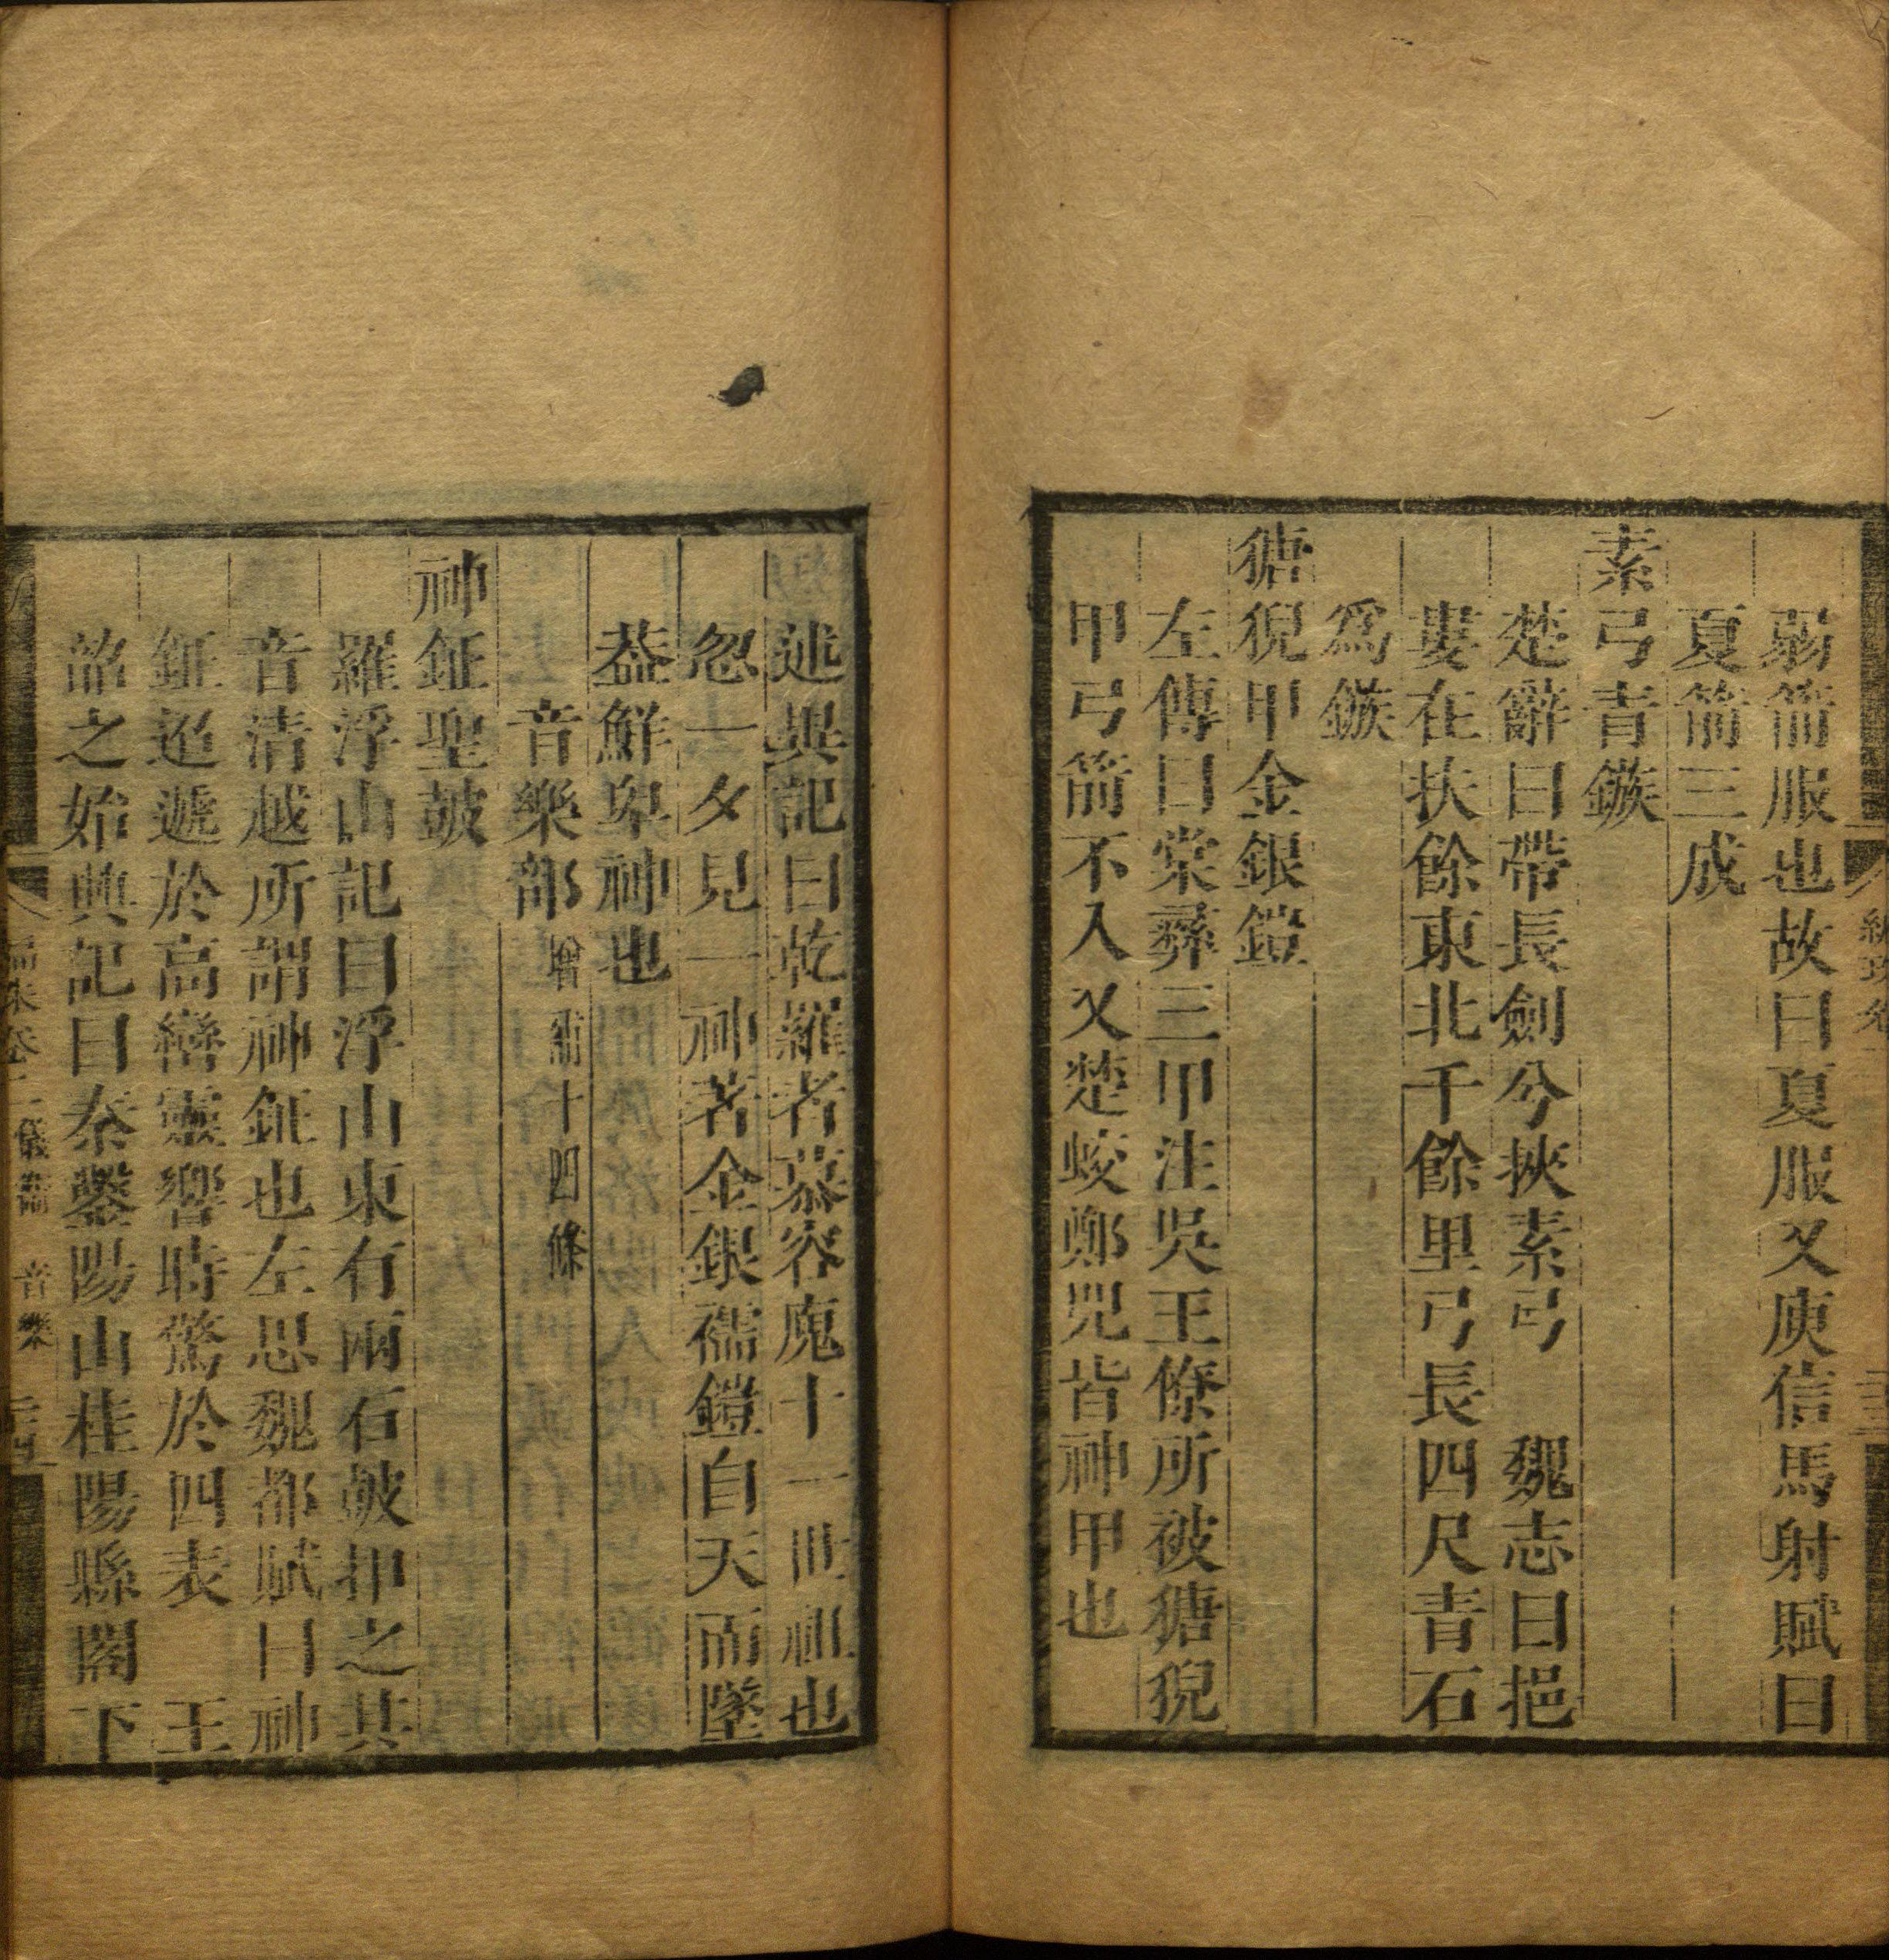 弱箭服也故曰夏服又庾信馬射賦曰
夏箭三成
素弓青鏃
楚辭曰帶長劍兮挾素弓　魏志曰挹
婁在扶餘東北千餘里弓長四尺青石
爲鏃
猪猊甲金銀鎧
左傳曰棠彝三甲注吳王僚所被猪猊
甲弓箭不入又楚蛟鄭兕皆神甲也
述異記曰乾羅者慕容廆十一世祖也
忽一夕見一神著金銀襦鎧自天而墜
葢鮮卑神也
音樂部增補十四條
神鉦聖皷
羅浮山記曰浮山東有兩石皷扣之其
音清越所謂神鉦也左思魏都賦曰神
鉦迢遞於高巒靈響時驚於四表　王
韶之始興記曰秦鑿陽山桂陽縣閣下
編珠卷二 儀衞 音樂 三四